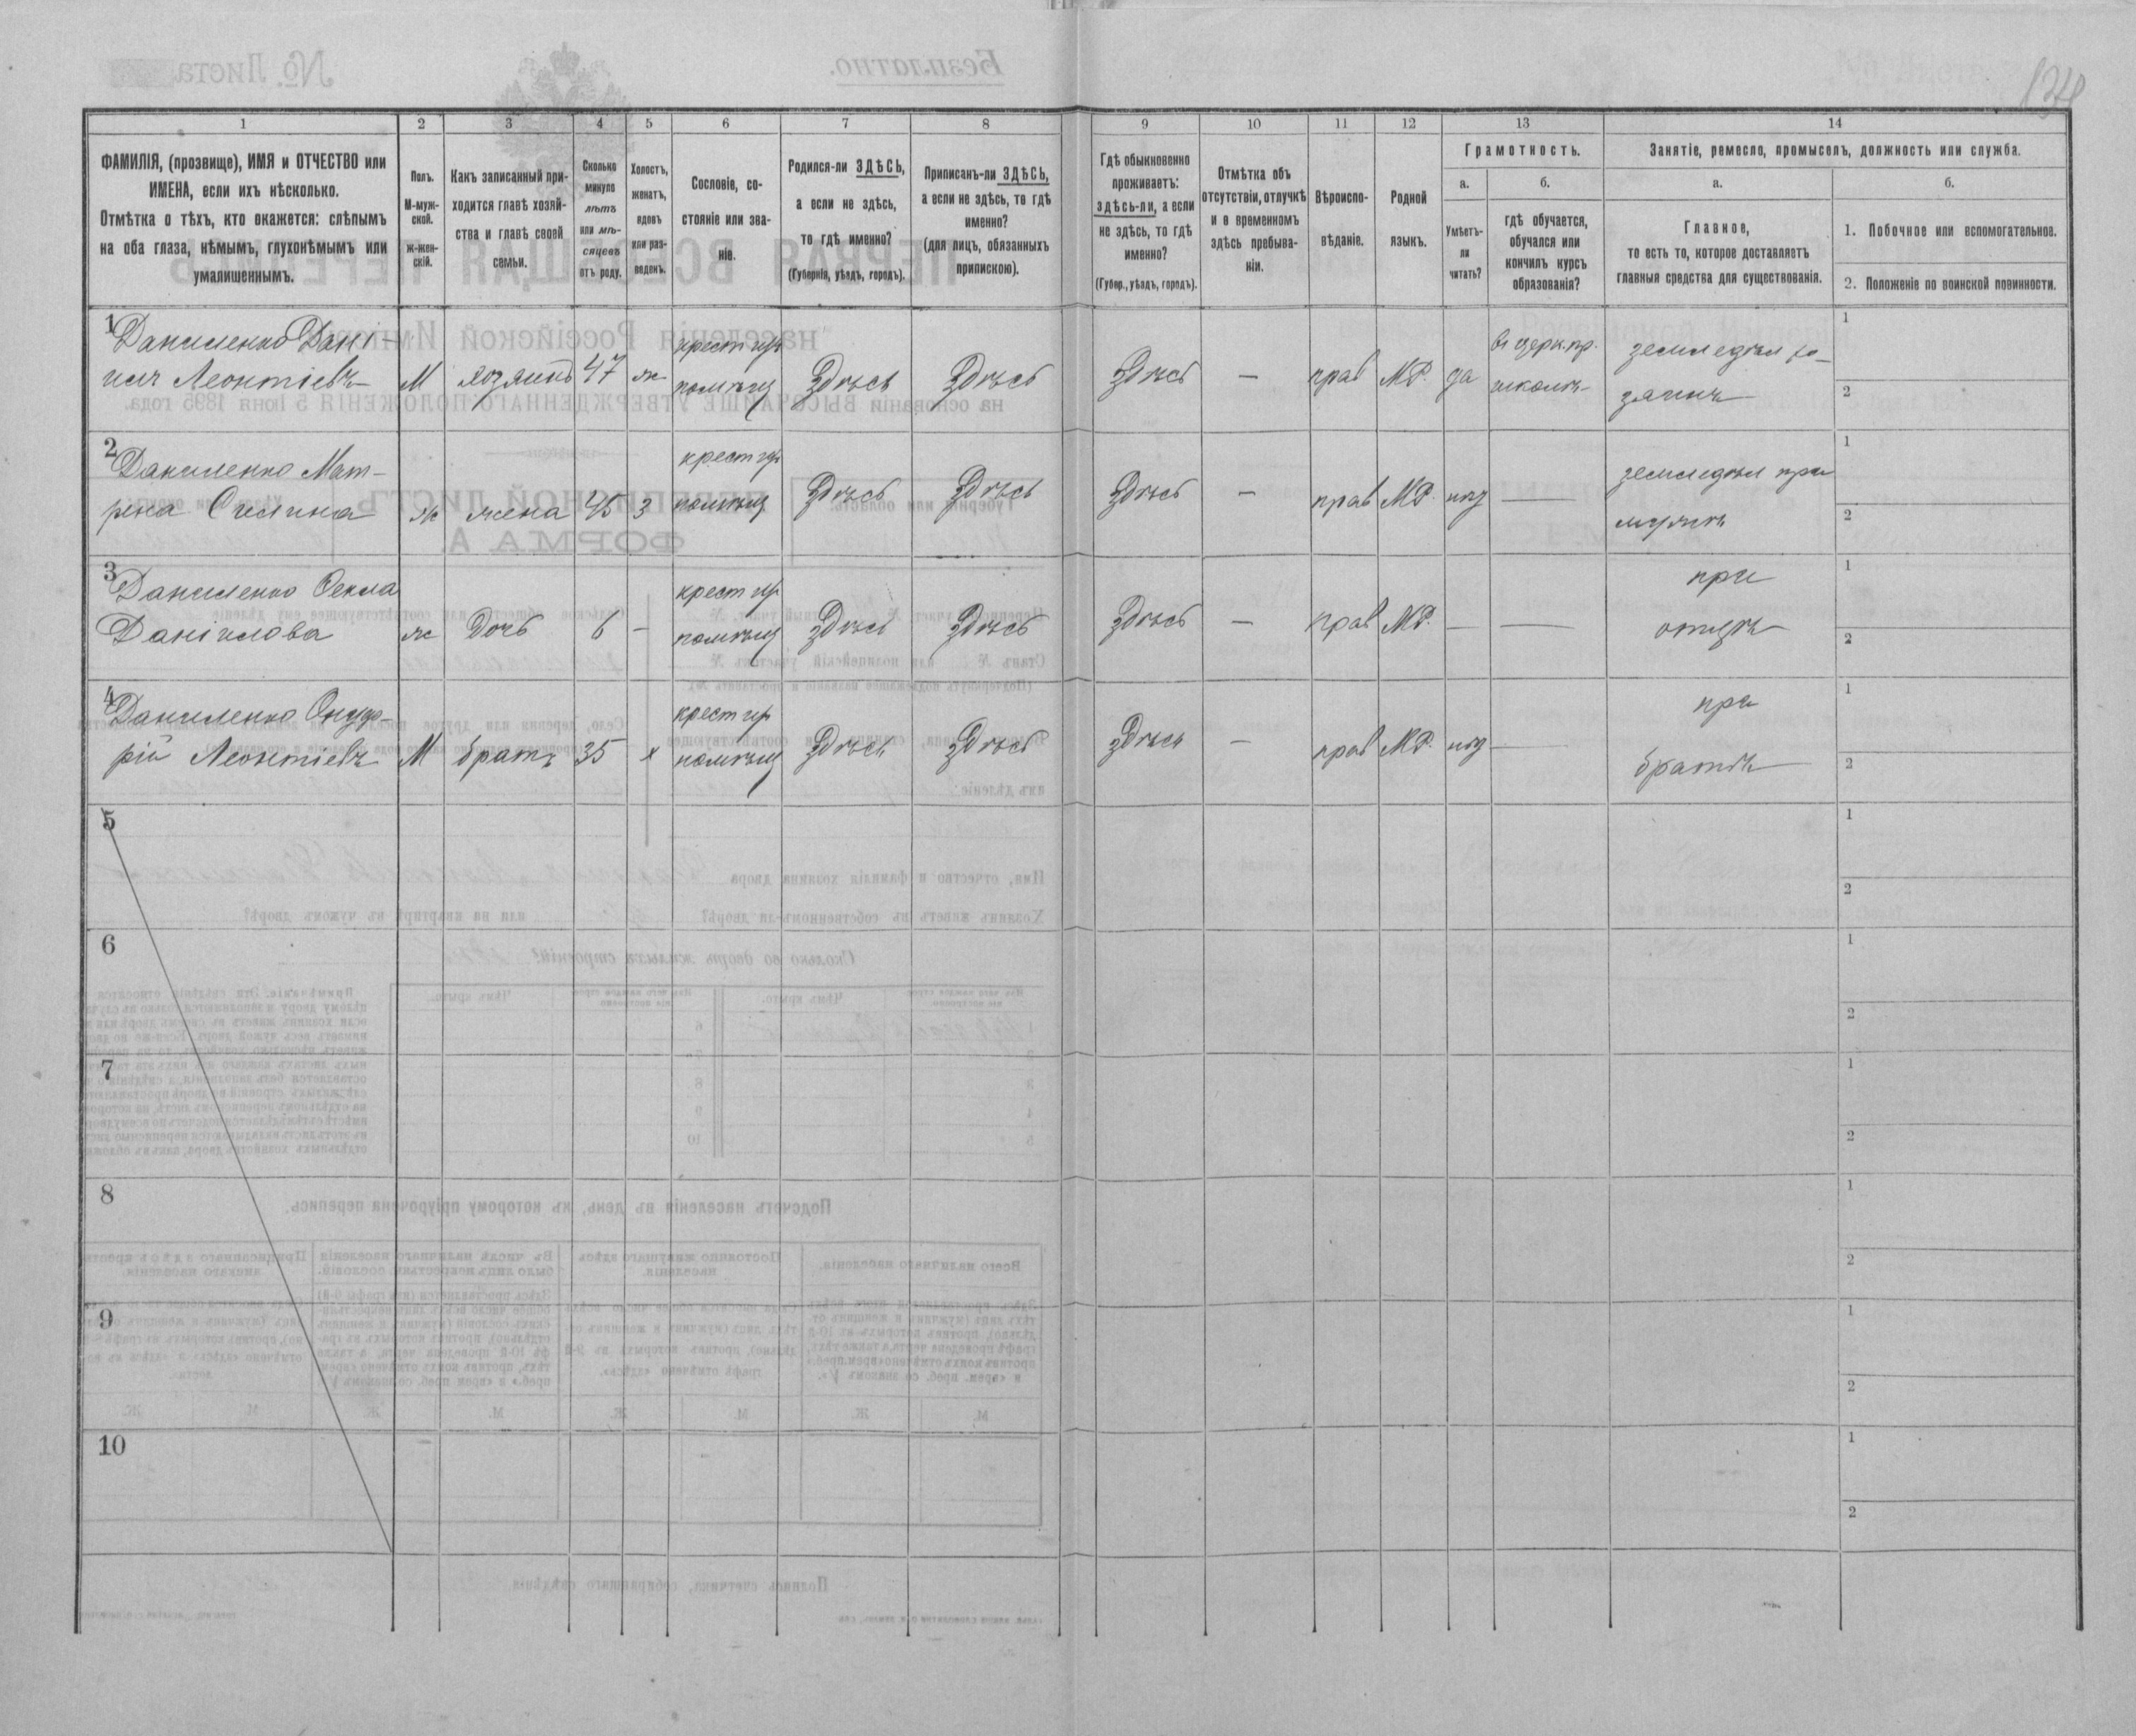 134
1 2 3 4 5 6 7 8 9 10 11 12 13 14
ФАМИЛІЯ, (прозвище), ИМЯ и ОТЧЕСТВО или
ИМЕНА, если ихъ нѣсколько.
Отмѣтка о тѣхъ, кто окажется: слѣпымъ
на оба глаза, нѣмымъ, глухонѣмымъ или
умалишеннымъ.
Полъ.
М-муж-
ской.
ж-жен-
скій.
Какъ записанный при-
ходится главѣ хозяй-
ства и главѣ своей
семьи.
Сколько
минуло
лѣтъ
или мѣ-
сяцевъ
отъ роду.
Холостъ,
женатъ,
вдовъ
или раз-
веденъ.
Сословіе, со-
стояніе или зва-
ніе.
Родился-ли ЗДѢСЬ,
а если не здѣсь,
то гдѣ именно?
(Губернія, уѣздъ, городъ).
Приписанъ-ли ЗДѢСЬ,
а если не здѣсь, то гдѣ
именно?
(для лицъ, обязанныхъ
припискою).
Гдѣ обыкновенно
проживаетъ:
здѣсь-ли, а если
не здѣсь, то гдѣ
именно?
(Губер., уѣздъ, городъ).
Отмѣтка объ
отсутствіи, отлучкѣ
и о временномъ
здѣсь пребыва-
ніи.
Вѣроиспо-
вѣданіе.
Родной
языкъ.
Грамотность.
а.
Умѣетъ-
ли
читать?
б.
гдѣ обучается,
обучался или
кончилъ курсъ
образованія?
Занятіе, ремесло, промыселъ, должность или служба.
а.
Главное,
то есть то, которое доставляетъ
главныя средства для существованія.
б.
1. Побочное или вспомогательное.
2. Положеніе по воинской повинности.
1 Даниленко Дані- крест ир въ церк.пр. земледѣл хо- 1
илъ Леонтіевъ М хозяинъ 47 ж помѣщ Здѣсь Здѣсь Здѣсь — прав МР. да школѣ зяинъ 2
2 Даниленко Мат- крест ир земледѣл при 1
рена Силина ж жена 45 З помѣщ Здѣсь Здѣсь Здѣсь — прав МР. нѣт — мужѣ 2
3 Даниленко Ѳекла крест ир при 1
Даніилова ж Дочь 6 - помѣщ Здѣсь Здѣсь Здѣсь — прав МР. — — отцѣ 2
4 Даниленко Онуф- крест ир при 1
рій Леонтіевъ М братъ 35 х помѣщ Здѣсь Здѣсь Здѣсь — прав МР. нѣт — братѣ 2
5 1
2
6 1
2
7 1
2
8 1
2
9 1
2
10 1
2